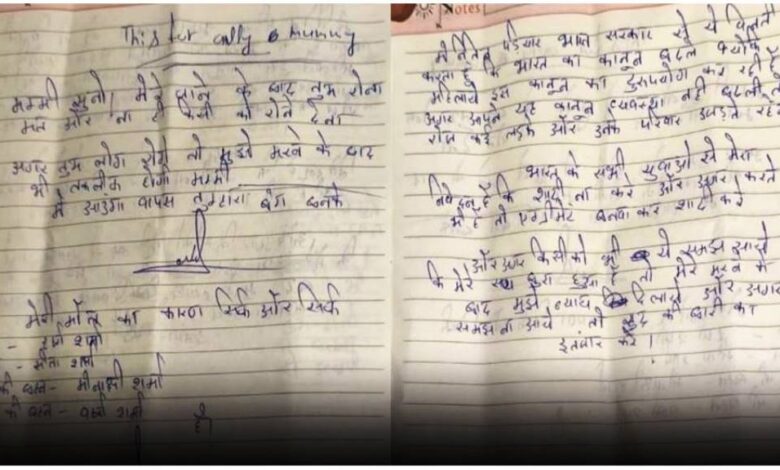 This for only mummy
मम्मी सुनो, मेरे जाने के बाद तुम रोना
मत और ना ही किसी को रोने देना
अगर तुम लोग रोये तो मुझे मरने के बाद
भी तकलीफ होगी मम्मी
मैं आऊंगा वापस तुम्हारा बनके
मेरी मौत का कारण सिर्फ और सिर्फ
शर्मा
शर्मा
की शर्मा
की शर्मा
है
Notes
मैं नितिन पडियार भारत सरकार से ये विनती
करता हूँ कि भारत का कानून बदले क्योंकि
महिलाये इस कानून का दुरुपयोग कर रही है
अगर आपने यह कानून व्यवस्था नही बदली
रोज कई लड़के और उनके परिवार उजड़ते
भारत के सभी युवाओ से मेरा
निवेदन है कि शादी ना करे और अगर करते
भी है तो एग्रीमेंट बनवा कर शादी करे
और अगर किसी को भी ये समझ आये
कि मेरे साथ बुरा हुआ है तो मेरे मरने के
बाद मुझे न्याय दिलाये और अगर
समझ ना आये तो खुद की बारी का
इंतजार करे।